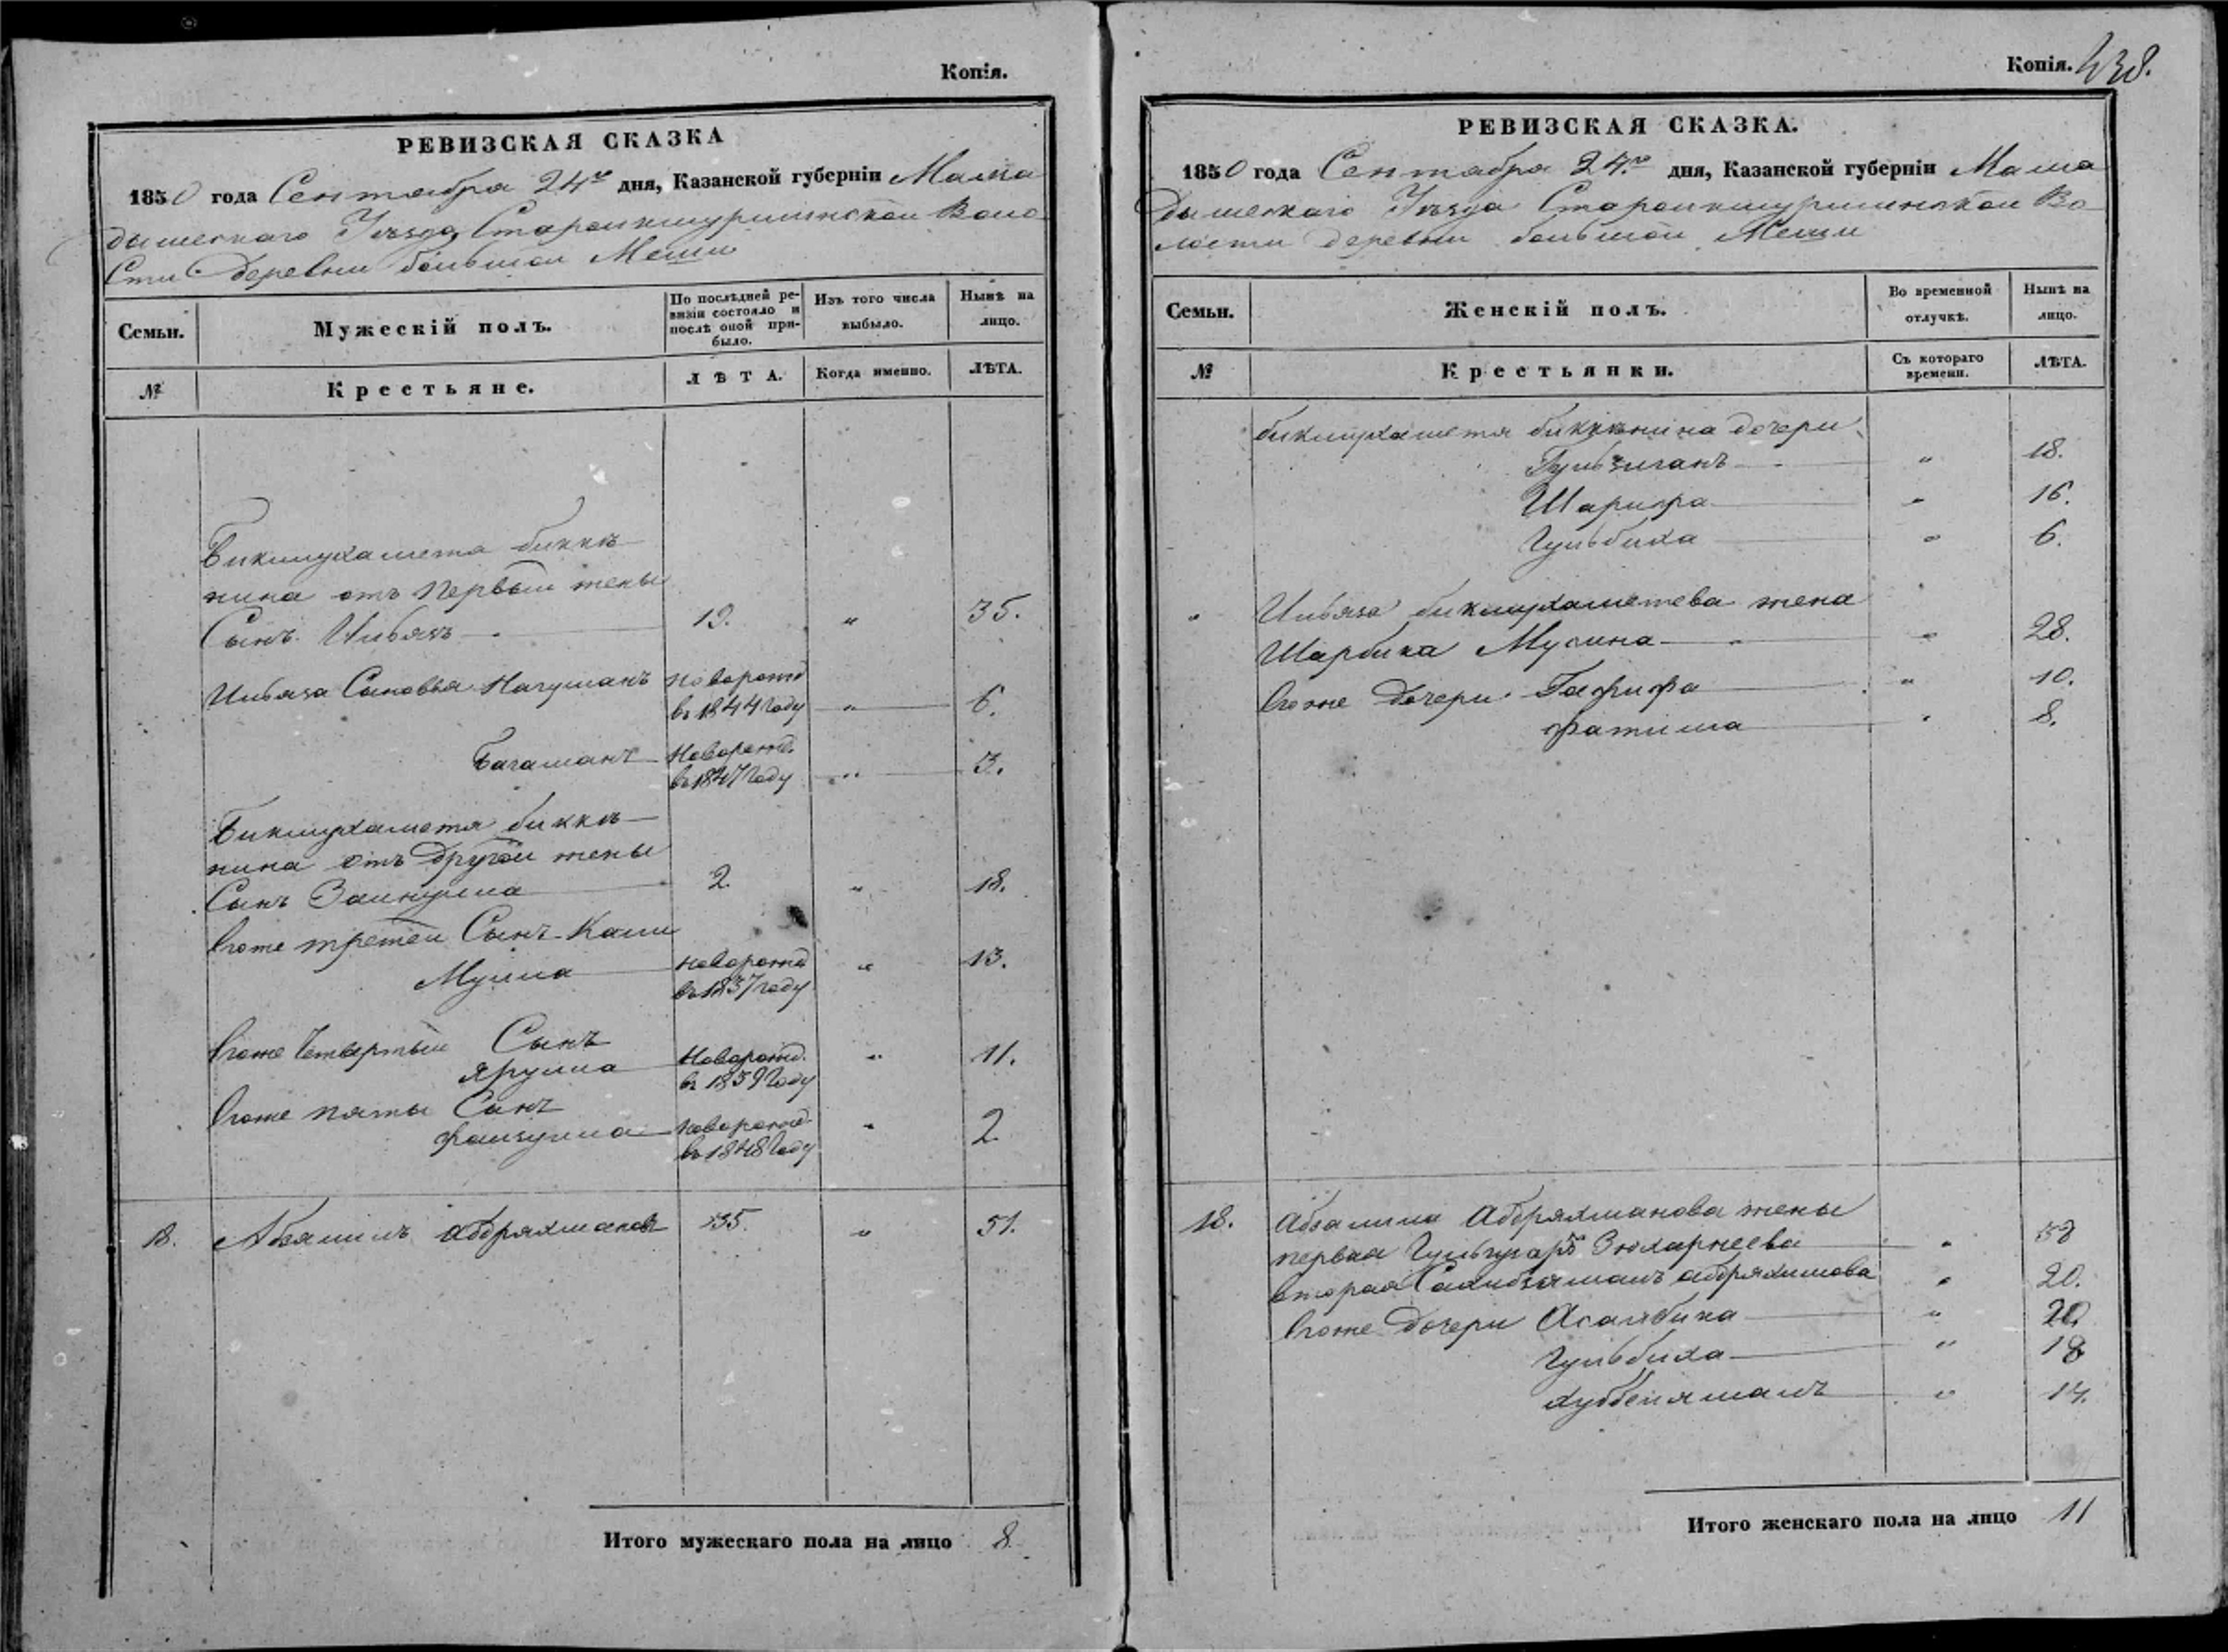 Копія.
РЕВИЗСКАЯ СКАЗКА
1850 года Сентября 24го дня, Казанской губерніи Мама
дышскаго Уѣзда Старо
сти Деревни большой Меши
Семьи.
Мужескій полъ.
По послѣдней ре-
визіи состояло и
послѣ оной при-
было.
Изъ того числа
выбыло.
Нынѣ на
лицо.
№
Крестьяне.
ЛѢТА.
Когда именно.
ЛѢТА.
Бикмухаметя биккѣ
нина отъ первый жены
Сынъ Ильязъ 19. " 35.
Ильяза Сыновья Нагуманъ новорожд
въ 1844 году " 6.
Багаманъ Новорожд.
въ 1847 году " 3.
Бикмухаметя биккѣ
нина отъ другой жены
Сынъ Зайнулла 2. " 18.
Егоже третей Сынъ Кали
Мулла новорожд
въ 1837 году " 13.
Егоже Четвертый Сынъ
Ярулла Новорожд.
въ 1839 году " 11.
Егоже пяты Сынъ
файзулла новорожд.
въ 1848 году " 2.
18. Абзялилъ абдряхмановъ 35. " 51.
Итого мужескаго пола на лицо 8.
Копія. 438.
РЕВИЗСКАЯ СКАЗКА.
1850 года Сентября 24.го дня, Казанской губерніи Мама
дышскаго Уѣзда Старо Во
лости деревни большой Меши
Семьи.
Женскій полъ.
Во временной
отлучкѣ.
Нынѣ на
лицо.
№
Крестьянки.
Съ котораго
времени.
ЛѢТА.
бикмухаметя биккѣнина дочери
Гульзиганъ " 18.
Шарифа " 16.
Гульбиха " 6.
" Ильяза бикмухаметева жена
Шарбика Мусина " 28.
Егоже дочери Гафифа " 10.
фатима " 8.
18. Абзалила Абдряхманова жены
первая Гульгузаръ Зюхарнеева "
вторая абдряхимова " 20.
Егоже дочери Асанбика " 20.
Гульбиха " 18
" 14.
Итого женскаго пола на лицо 11